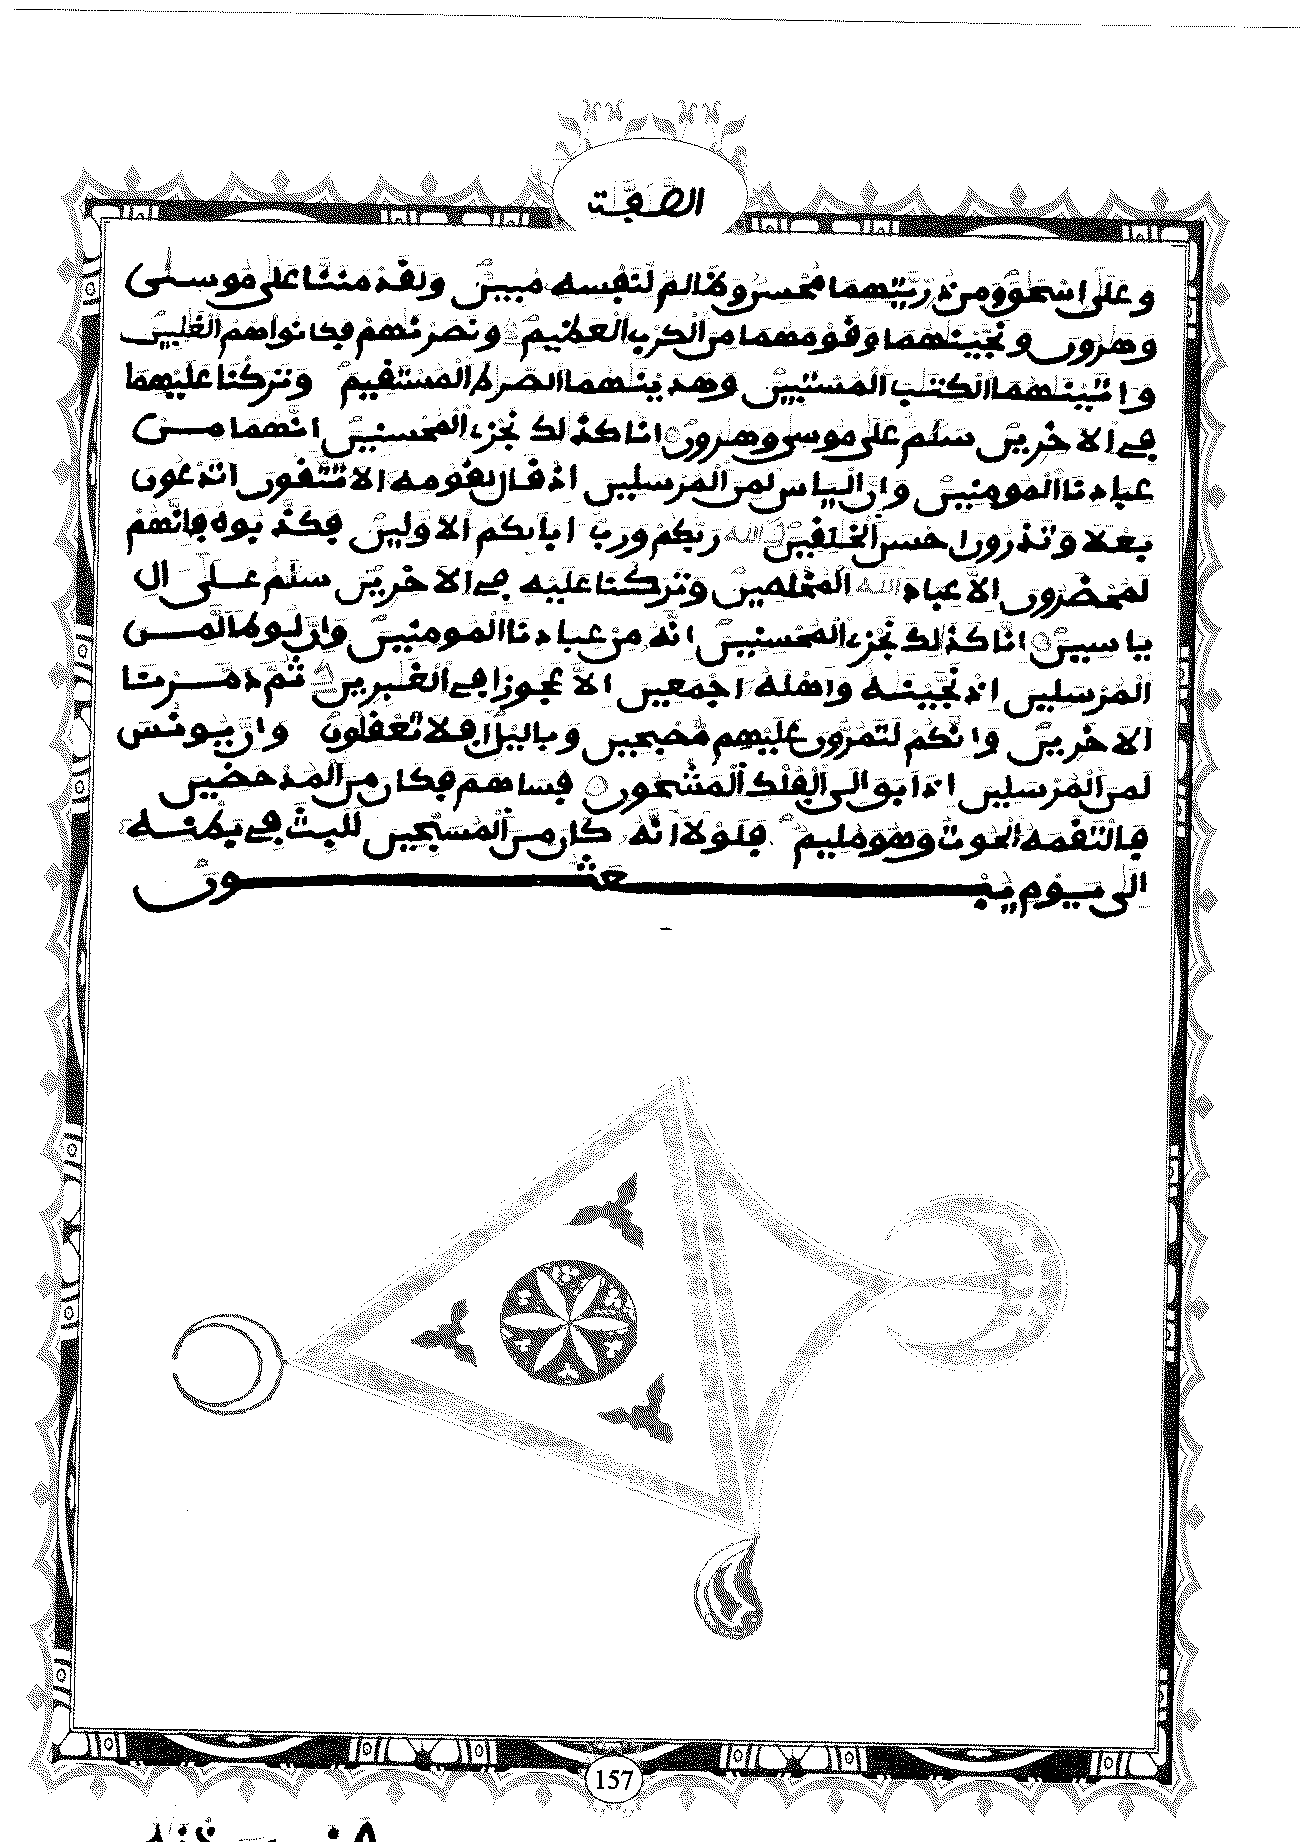 الصفت
وعلى اسحق ومن ذريتهما محسن وظالم لنفسه مبين ولقد مننا على موسى
وهرون ونجينهما وقومهما من الكرب العظيم ونصرنهم فكانوا هم الغلبين
واتينهما الكتب المستبين وهدينهما الصرط المستقيم وتركنا عليهما
في الاخرين سلم على موسى وهرون انا كذلك نجزي المحسنين انهما من
عبادنا المومنين وان الياس لمن المرسلين اذ قال لقومه الا تتقون اتدعون
بعلا وتذرون احسن الخلقين الله ربكم ورب ابايكم الاولين فكذبوه فانهم
لمحضرون الا عباد الله المخلصين وتركنا عليه في الاخرين سلم على ال
ياسين انا كذلك نجزي المحسنين انه من عبادنا المومنين وان لوطا لمن
المرسلين اذ نجينه واهله اجمعين الا عجوزا في الغبرين ثم دمرنا
الاخرين وانكم لتمرون عليهم مصبحين وباليل افلا تعقلون وان يونس
لمن المرسلين اذ ابق الى الفلك المشحون فساهم فكان من المدحضين
فالتقمه الحوت وهو مليم فلولا انه كان من المسبحين للبث في بطنه
الى يوم يبعثون
157